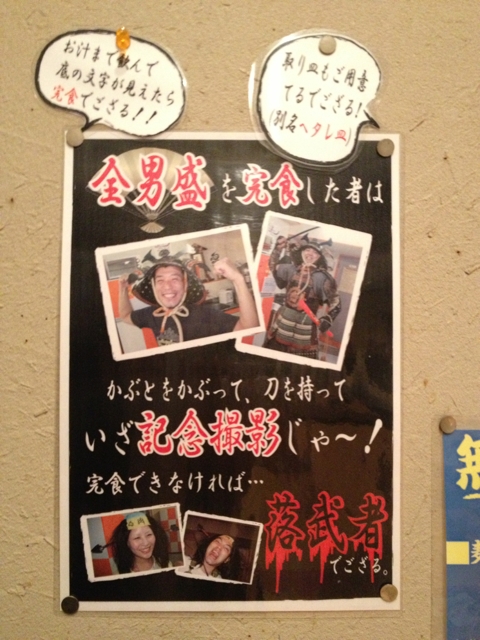 お汁まで飲んで
底の文字が見えたら
完食でござる！！
取り皿もご用意
してるでござる！
(別名ヘタレ皿)
全男盛を完食した者は
かぶとをかぶって、刀を持って
いざ記念撮影じゃ〜！
完食できなければ…
落武者
でござる。
無